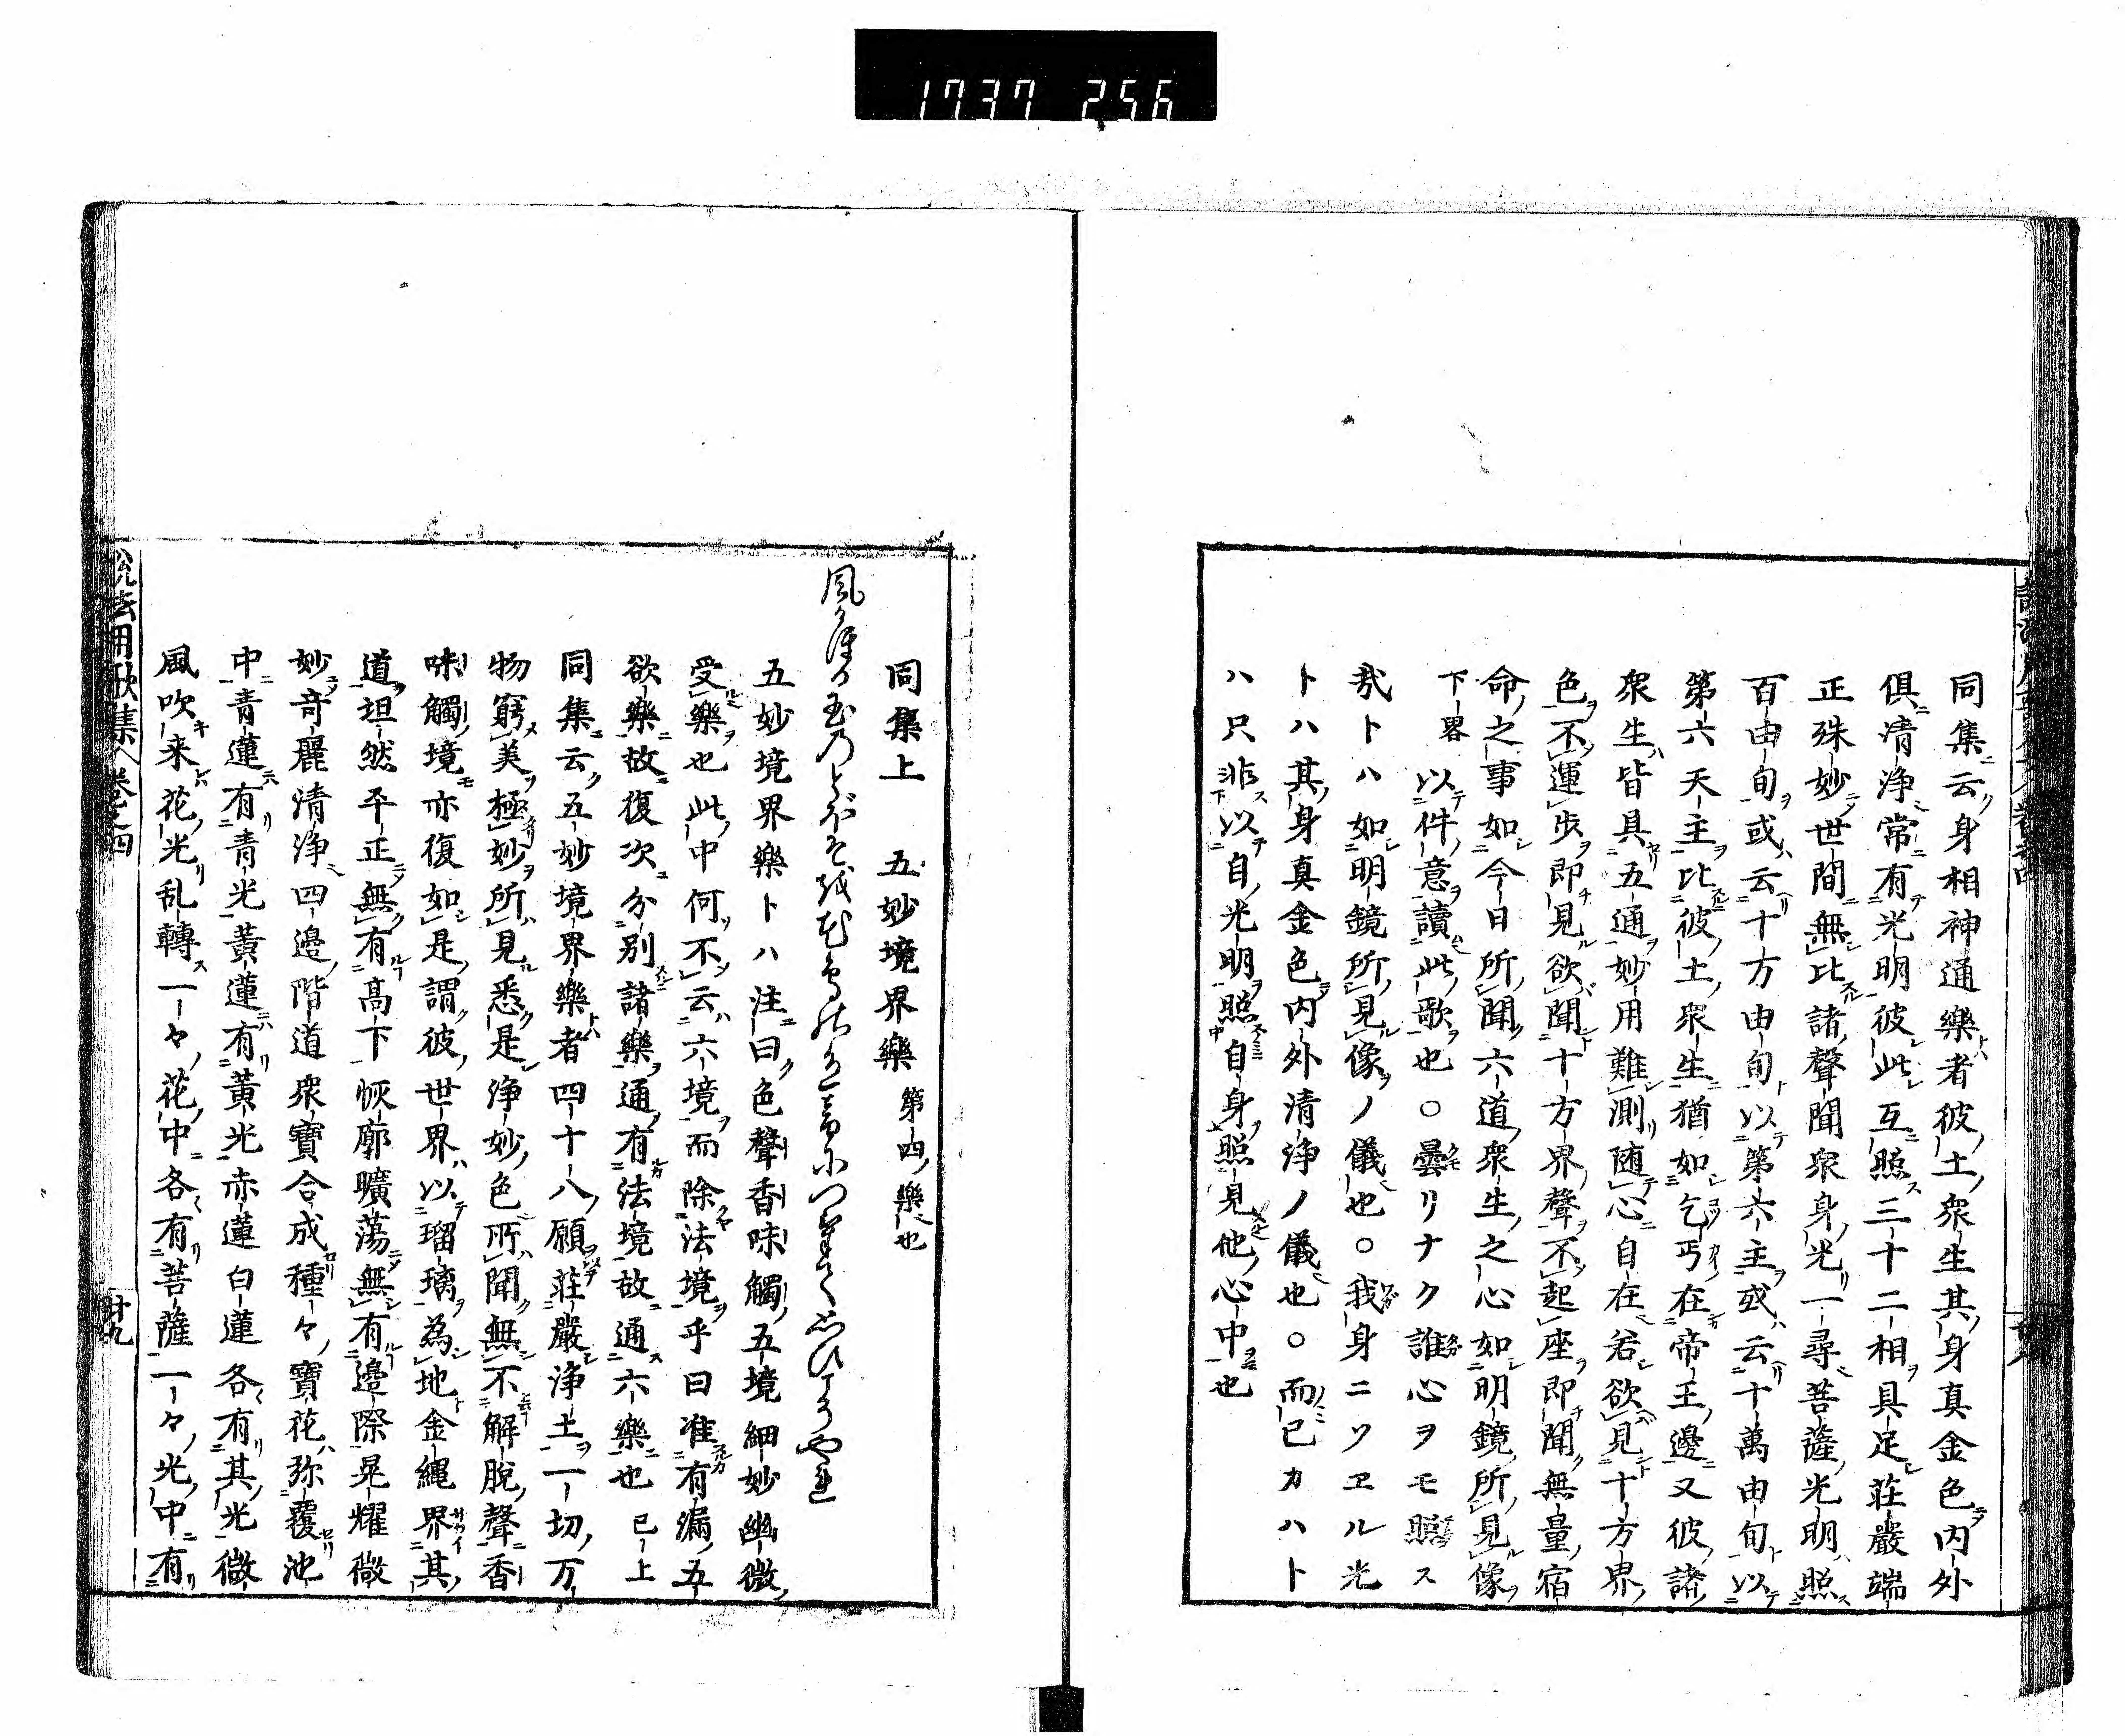 1737 256
同集云身相神通樂者彼土衆生其身真金色内外
俱清浄常有光明彼此互照三十二相具足荘嚴端
正殊妙世間無比諸聲聞衆身光一尋菩薩光明照
百由旬或云十方由旬以第六主或云十萬由旬以
第六天主比彼土衆生猶如乞丐在帝王邊又彼諸
衆生皆具五通妙用難測随心自在若欲見十方界
色不運歩即見欲聞十方界聲不起座即聞無量宿
命之事如今日所聞六道衆生之心如明鏡所見像
下畧 以件意讀此歌也○曇リナク誰心ヲモ照ス
哉トハ如明鏡所見像ノ儀也○我身ニソヱル光
トハ其身真金色内外清浄ノ儀也○而已カハト
ハ只非以自光明照自身照見他心中也
同集上 五妙境界樂 第四樂也
五妙境界樂トハ注曰色聲香味觸五境細妙幽微
受樂也此中何不云六境而除法境乎曰准有漏五
欲樂故復次分別諸樂通有法境故通六樂也 已上
同集云五妙境界樂者四十八願荘嚴浄土一切万
物窮美極妙所見悉是浄妙色所聞無不解脱聲香
味觸境亦復如是謂彼世界以瑠璃為地金縄界其
道坦然平正無有高下恢廓曠蕩無有邊際晃耀微
妙奇麗清浄四邊階道衆寶合成種々寶花弥覆池
中青蓮有青光黄蓮有黄光赤蓮白蓮各有其光微
風吹来花光乱轉一々花中各有菩薩一々光中有
説法用歌集 巻之四 廿九